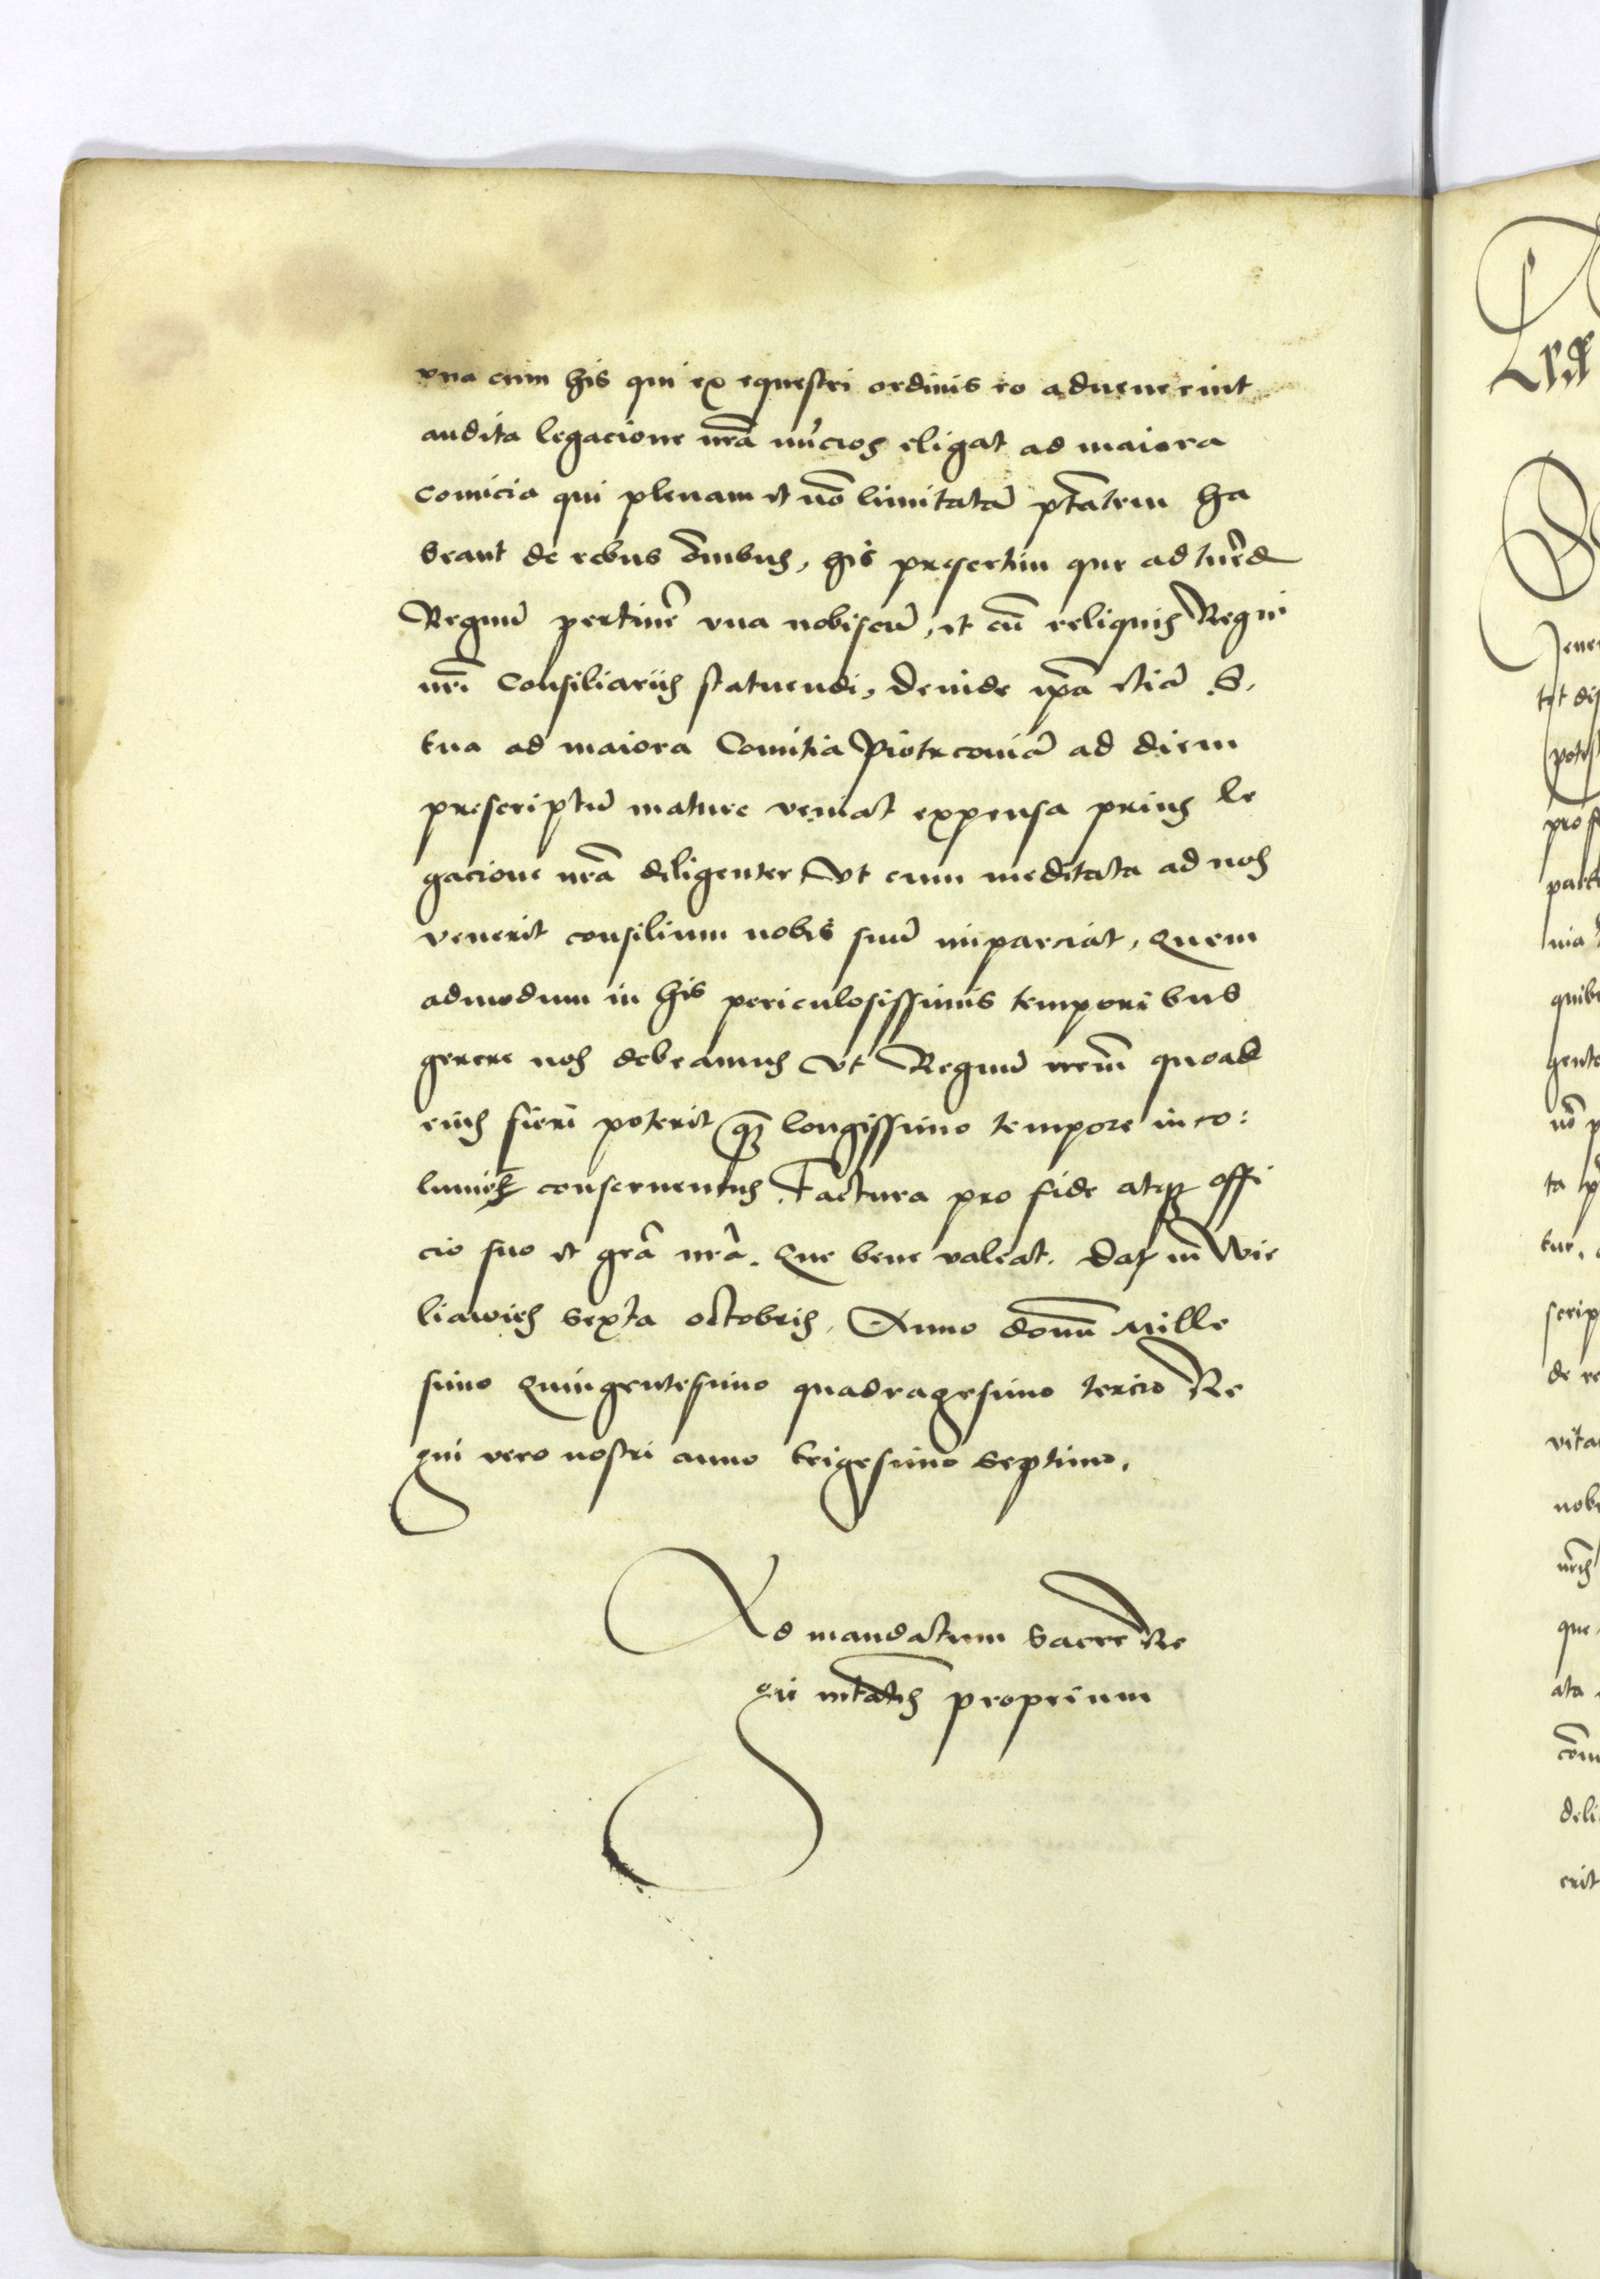 vna cum his qui ex equestri ordinis eo aduenerint
audita legacione nr̃a nũcios eligat ad maiora
comicia qui plenam et nõ limitatã ptãtem ha
beant de rebus õmibus, his presertim que ad tuend̃
Regnũ pertinẽt vna nobiscũ, et cũ reliquis Regni
nrĩ Consiliariis statuendi, Deinde ipã etiã S.
tua ad maiora Comitia Piotrcouiã ad diem
prescriptũ mature veniat expensa prius le
gacione nr̃a diligenter, Vt cum meditata ad nos
venerit consilium nobis suũ imparciat, Quem
admodum in his periculosissimis temporibus
gerere nos debeamus Vt Regnũ nrm̃ quoad
eius fieri poterit q̃ longissimo tempore inco:
lumes conseruemus. Factura pro fide atq offi
cio suo et grã nr̃a. Que bene valeat. Dat in Wie
liawies Sexta octobris. Anno domĩ Mille
simo Quingentesimo quadragesimo tercio Re
gni vero nostri anno trigesimo Septimo.
Ad mandatum Sacre Re
gie mtãtis proprium
Jene
tot dis
potes
pro f
parte
nia
quib
gente
nõ p
ta p
tur,
scrip
de re
vita
nob
nrĩs
que
ata
com
deli
erit